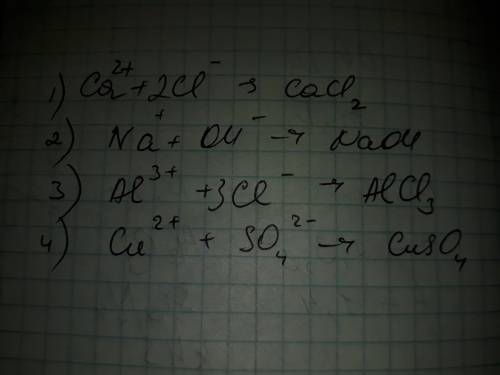 1) Ca²⁺ + 2Cl⁻ → CaCl₂
2) Na⁺ + OH⁻ → NaOH
3) Al³⁺ + 3Cl⁻ → AlCl₃
4) Cu²⁺ + SO₄²⁻ → CuSO₄